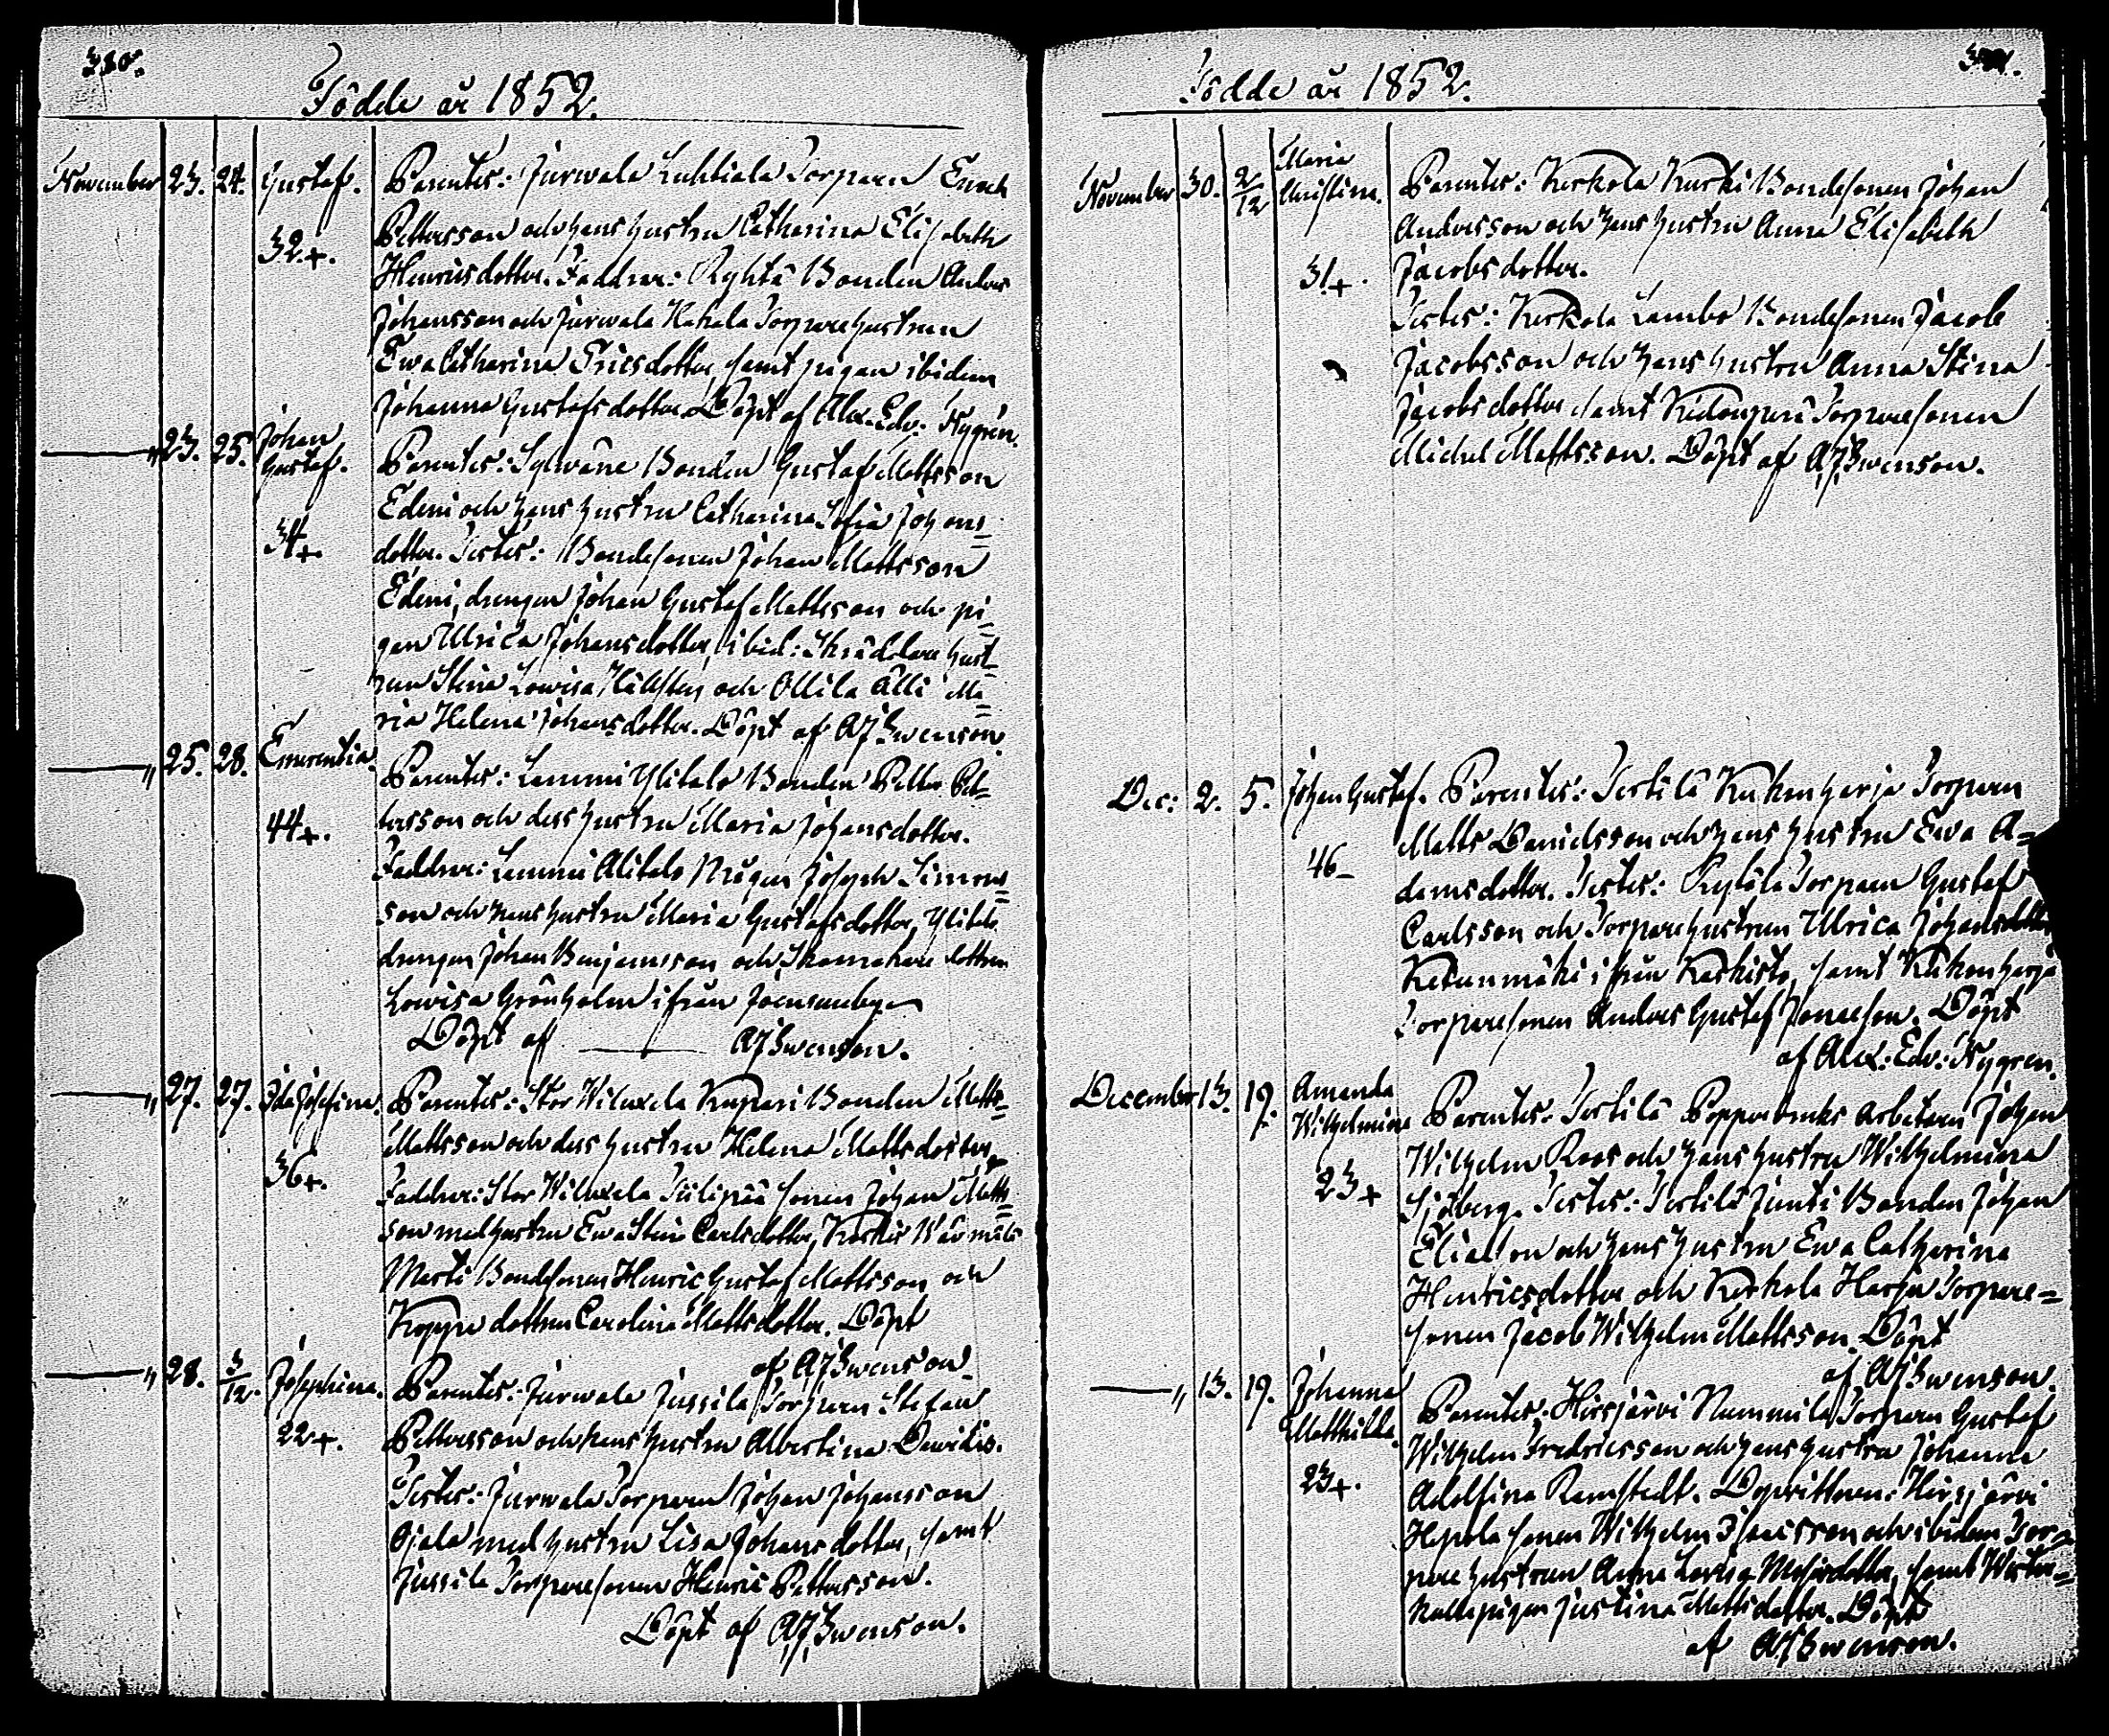 380.
Födde år 1852.
November 23. 24. Gustaf. Parentes: Jurwala Torparen Enoch
Pettersson och hans hustru Catharina Elisabeth
32+. Henricsdotter. Faddrar: Ryhtä Bonden Anders
Johansson och Jurwala Torparehustrun
Ewa Catharina Ericsdotter, samt pigan ibidem
Johanna Gustafsdotter. Döpt af Alex. Edv: Nygrén.
— „ 23. 25. Johan Gustaf. Parentes: Bonden Gustaf Mattsson
Edeni och hans hustru Catharina Sofia Johans=
34+. dotter. Testes: Bondesonen Johan Mattsson
Edeni, drengen Johan Gustaf Mattsson och pi=
gan Ulrica Johansdotter, ibid: Skräddare hust=
run Stina Lowisa Hällsten och Ollila älli Ma=
ria Helena Johansdotter. Döpt af AJSwenson.
— „ 25. 28. Emerentia. Parentes: Lammi Ylitalo Bonden Petter Pet=
44+. tersson och dess hustru Maria Johansdotter.
Faddrar: Lammi Alitalo Mågen Joseph Simons=
son och hans hustru Maria Gustafsdotter, Ylitalo
drengen Johan Benjamsson och Skomakare dottren
Lowisa Grönholm ifrån
Döpt af — AJSwenson.
— „ 27. 27. Ida Josefina. Parentes: Stor Wiluxela Kupari Bonden Matts
Mattsson och dess hustru Helena Mattsdotter,
36+. Faddrar: Stor Wiluxela sonen Johan Matts=
son med hustru Ewa Stina Carlsdotter,
Marti Bondesonen Henric Gustaf Mattsson och
dottren Carolina Mattsdotter. Döpt
af AJSwenson.
— „ 28. 3/12. Josephina. Parentes: Jurwala Jussila Torparen Stefan
22+. Pettersson och hans hustru Albertina Davidsd.
Testes: Jurwala Torparen Johan Johansson
Ojala med hustru Lisa Johansdotter, samt
Jussila Torparesonen Henric Pettersson.
Döpt af AJSwenson.
Födde år 1852.
November 30. 2/12 Maria Christina. Parentes: Kerkola Kurki Bondesonen Johan
Andersson och hans hustru Anna Elisabeth
31+. Jacobsdotter.
Testes: Kerkola Lambo Bondesonen Jacob
Jacobsson och hans hustru Anna Stina
Jacobsdotter samt Torparesonen
Michel Mattsson. Döpt af AJSwenson.
Dec: 2. 5. Johan Gustaf. Parentes: Tertilä Kukonharja Torparen
Matts Danielsson och hans hustru Ewa A=
46- damsdotter. Testes: Torparen Gustaf
Carlsson och Torparehustrun Ulrica Johansdotter
Ketunmäki ifrån Koskisto, samt Kukonharja
Torparesonen Anders Gustaf Jonasson. Döpt
af Alex: Edv: Nygren.
December 13. 19. Amanda Wilhelmina Parentes: Tertilä Pappersbruks Arbetaren Johan
Wilhelm Roos och hans hustru Wilhelmina
23+ Sjöberg. Testes: Tertilä Junti Bonden Johan
Eliasson och hans hustru Ewa Catharina
Henricsdotter och Kerkola Harju Torpare=
sonen Jacob Wilhelm Mattsson. Döpt
af AJSwenson.
— „ 13. 19. Johanna Matthilda. Parentes: Hirsjärvi Nummila Torparen Gustaf
Wilhelm Fredricsson och hans hustru Johanna
23+. Adolfina Ramstedt. Dopvittnen: Hirsjärvi
Hepola sonen Wilhelm Isacsson och ibidem Tor=
pare hustrun Anna Lovisa Mosisdotter, samt
pigan Justina Mattsdotter. Döpt
af AJSwenson.